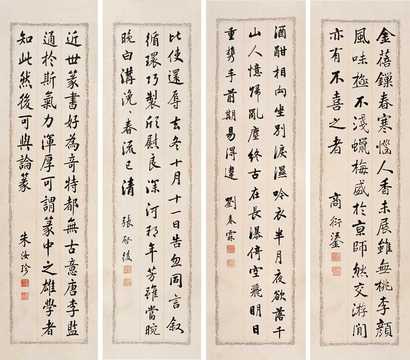 金蓓鏁春寒惱人香未展雖無桃李顏
風味極不淺蠟梅盛於京師然交游間
亦有不喜之者
商衍鎏
酒酣相向坐別淚濕吟衣半月夜欲落千
山人憶歸亂塵終古在長瀑倚空飛明日
重攜手前期易得違
劉春霖
比使還辱去冬十月十一日告忽同言敘
循環巧製欣慰良深河朔年芳雖當晼
晚白溝浼々春流已清
張啟後
近世篆書好為奇特都無古意唐李監
通於斯氣力渾厚可謂篆中之雄學者
知此然後可與論篆
朱汝珍